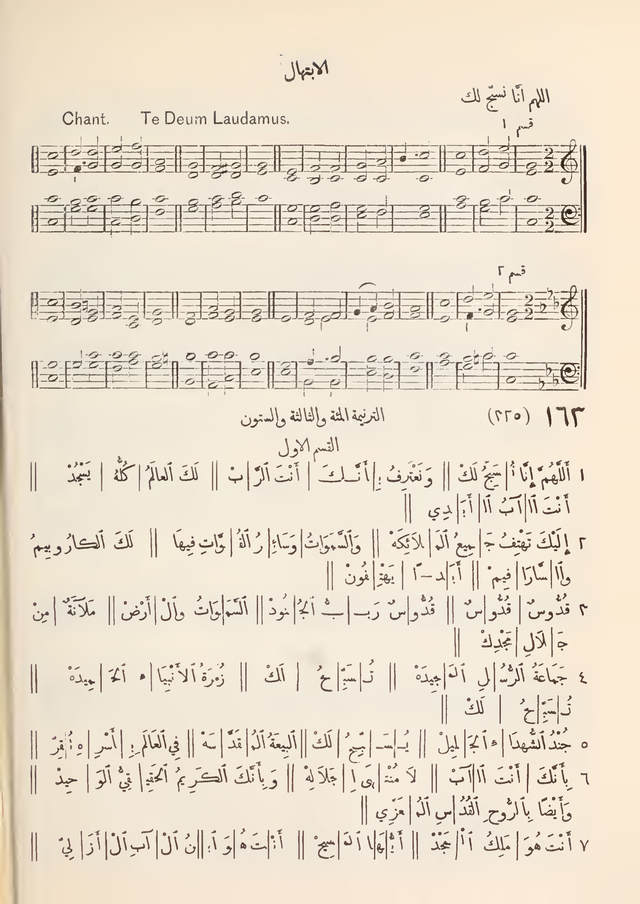 الابتهال
اللهم انَّا نسبّح لك
Chant. Te Deum Laudamus.
قسم ١
قسم ٢
١٦٣ (٢٢٥) الترنيمة المئة والثالثة والستون
القسم الاول
١ أَللَّهُمَّ إِنَّا نُ|سَبِّحُ لَكَ || وَنَعْتَرِفُ بِ|أَنَّـكَ | أَنْتَ ٱلرَّ|بْ || لَكَ ٱلعَالَمُ | كُلُّهُ | يَسْجُدْ ||
أَنْتَ ٱلْ|آبُ ٱلْ|أَبَ|دِي ||
٢ إِلَيْكَ تَهْتِفُ جَ|مِيعُ ٱلمَ|لَائِكَهْ || وَٱلسَّمَوَاتُ وَسَا|ئِرُ ٱلقُ|وَّاتِ فِيهَا || لَكَ ٱلكَارُوبِيمُ
وَٱل|سَّارَا|فِيمْ || أَبَـ|دًا | يَهْتِ|فُونْ ||
٣ قُدُّوسٌ | قُدُّو|سٌ || قُدُّوسٌ رَبُّ | ٱلجُ|نُودْ || ٱلسَّمَوَاتُ وَٱلْ|أَرْضْ || مَلْآنَةٌ | مِنْ
جَ|لَالِ | مَجْدِكْ ||
٤ جَمَاعَةُ ٱلرُّسُ|لِ ٱلمَ|جِيدَهْ || تُ|سَبِّ|حُ | لَكْ || زُمْرَةُ ٱلأَنْبِيَا|ءِ ٱلحَ|مِيدَهْ ||
تُ|سَبِّ|حُ | لَكْ ||
٥ جُنْدُ ٱلشُّهَدَا|ءِ ٱلجَ|لِيلْ || يُـ|سَـ|بِّحُ | لَكْ || أَلبِيعَةُ ٱلمُ|قَدَّ|سَهْ || فِي ٱلعَالَمِ | أَسْرِ|هِ | تُقِرّْ ||
٦ بِأَنَّكَ | أَنْتَ ٱل|آبْ || لَا مُنْتَ|هَى | جَلَالِهْ || وَبِأَنَّكَ ٱلكَرِيمُ ٱلحَقِي|قِيُّ ٱلوَ|حِيدْ ||
وَأَيْضًا بِٱلرُّوحِ ٱلقُدُ|سِ ٱلمُ|عَزِّي ||
٧ أَنْتَ هُوَ | مَلِكُ ٱلْ|مَجْدْ || أَيُّ|هَا ٱلمَ|سِيحْ || أَنْتَ هُ|وَ ٱبْ|نُ ٱلْ|آبِ ٱلْ|أَزَ|لِيّْ ||